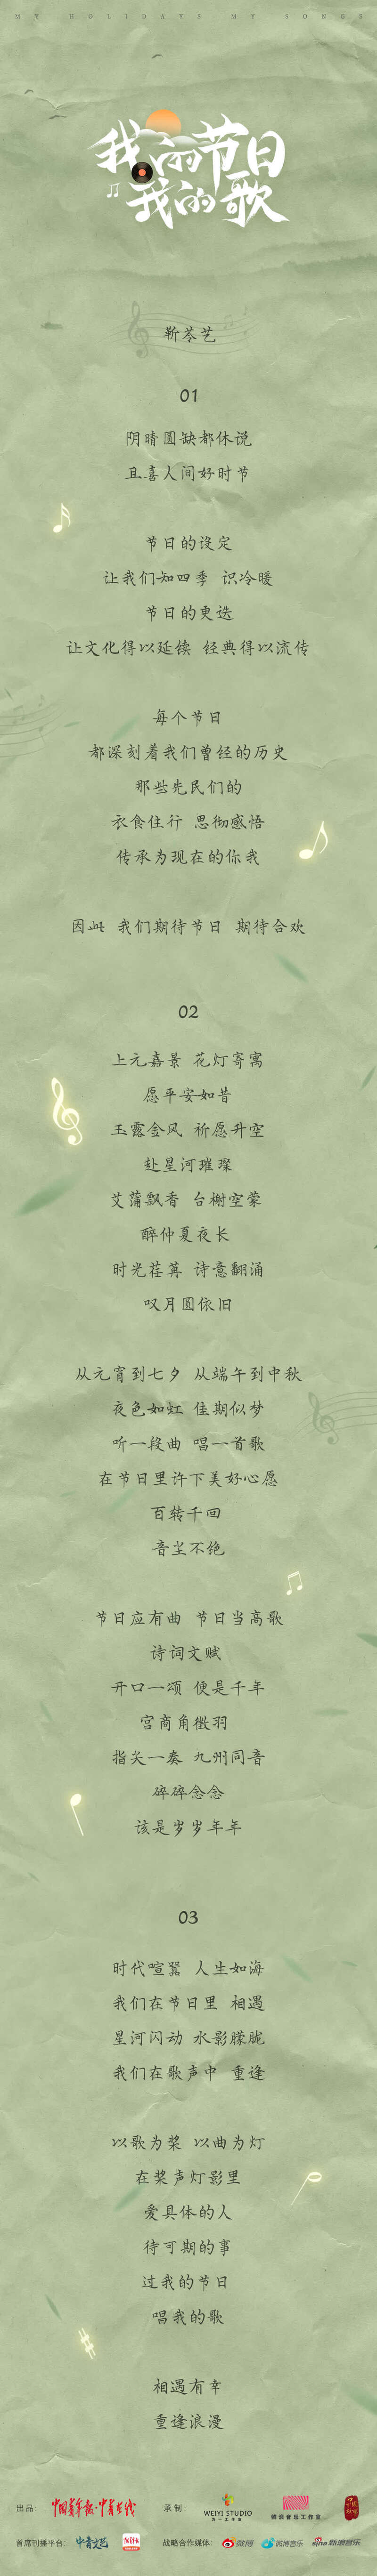 MY HOLIDAYS MY SONGS
我的节日
我的歌
靳苓艺
01
阴晴圆缺都休说
且喜人间好时节
节日的设定
让我们知四季 识冷暖
节日的更迭
让文化得以延续 经典得以流传
每个节日
都深刻着我们曾经的历史
那些先民们的
衣食住行 思彻感悟
传承为现在的你我
因此 我们期待节日 期待合欢
02
上元嘉景 花灯寄寓
愿平安如昔
玉露金风 祈愿升空
赴星河璀璨
艾蒲飘香 台榭空蒙
醉仲夏夜长
时光荏苒 诗意翻涌
叹月圆依旧
从元宵到七夕 从端午到中秋
夜色如虹 佳期似梦
听一段曲 唱一首歌
在节日里许下美好心愿
百转千回
音尘不绝
节日应有曲 节日当高歌
诗词文赋
开口一颂 便是千年
宫商角徵羽
指尖一奏 九州同音
碎碎念念
该是岁岁年年
03
时代喧嚣 人生如海
我们在节日里 相遇
星河闪动 水影朦胧
我们在歌声中 重逢
以歌为桨 以曲为灯
在桨声灯影里
爱具体的人
待可期的事
过我的节日
唱我的歌
相遇有幸
重逢浪漫
出品: 中国青年报·中青在线
承制: WEIYI STUDIO
首席刊播平台: 中青文艺
战略合作媒体: 微博 微博音乐 sina 新浪音乐